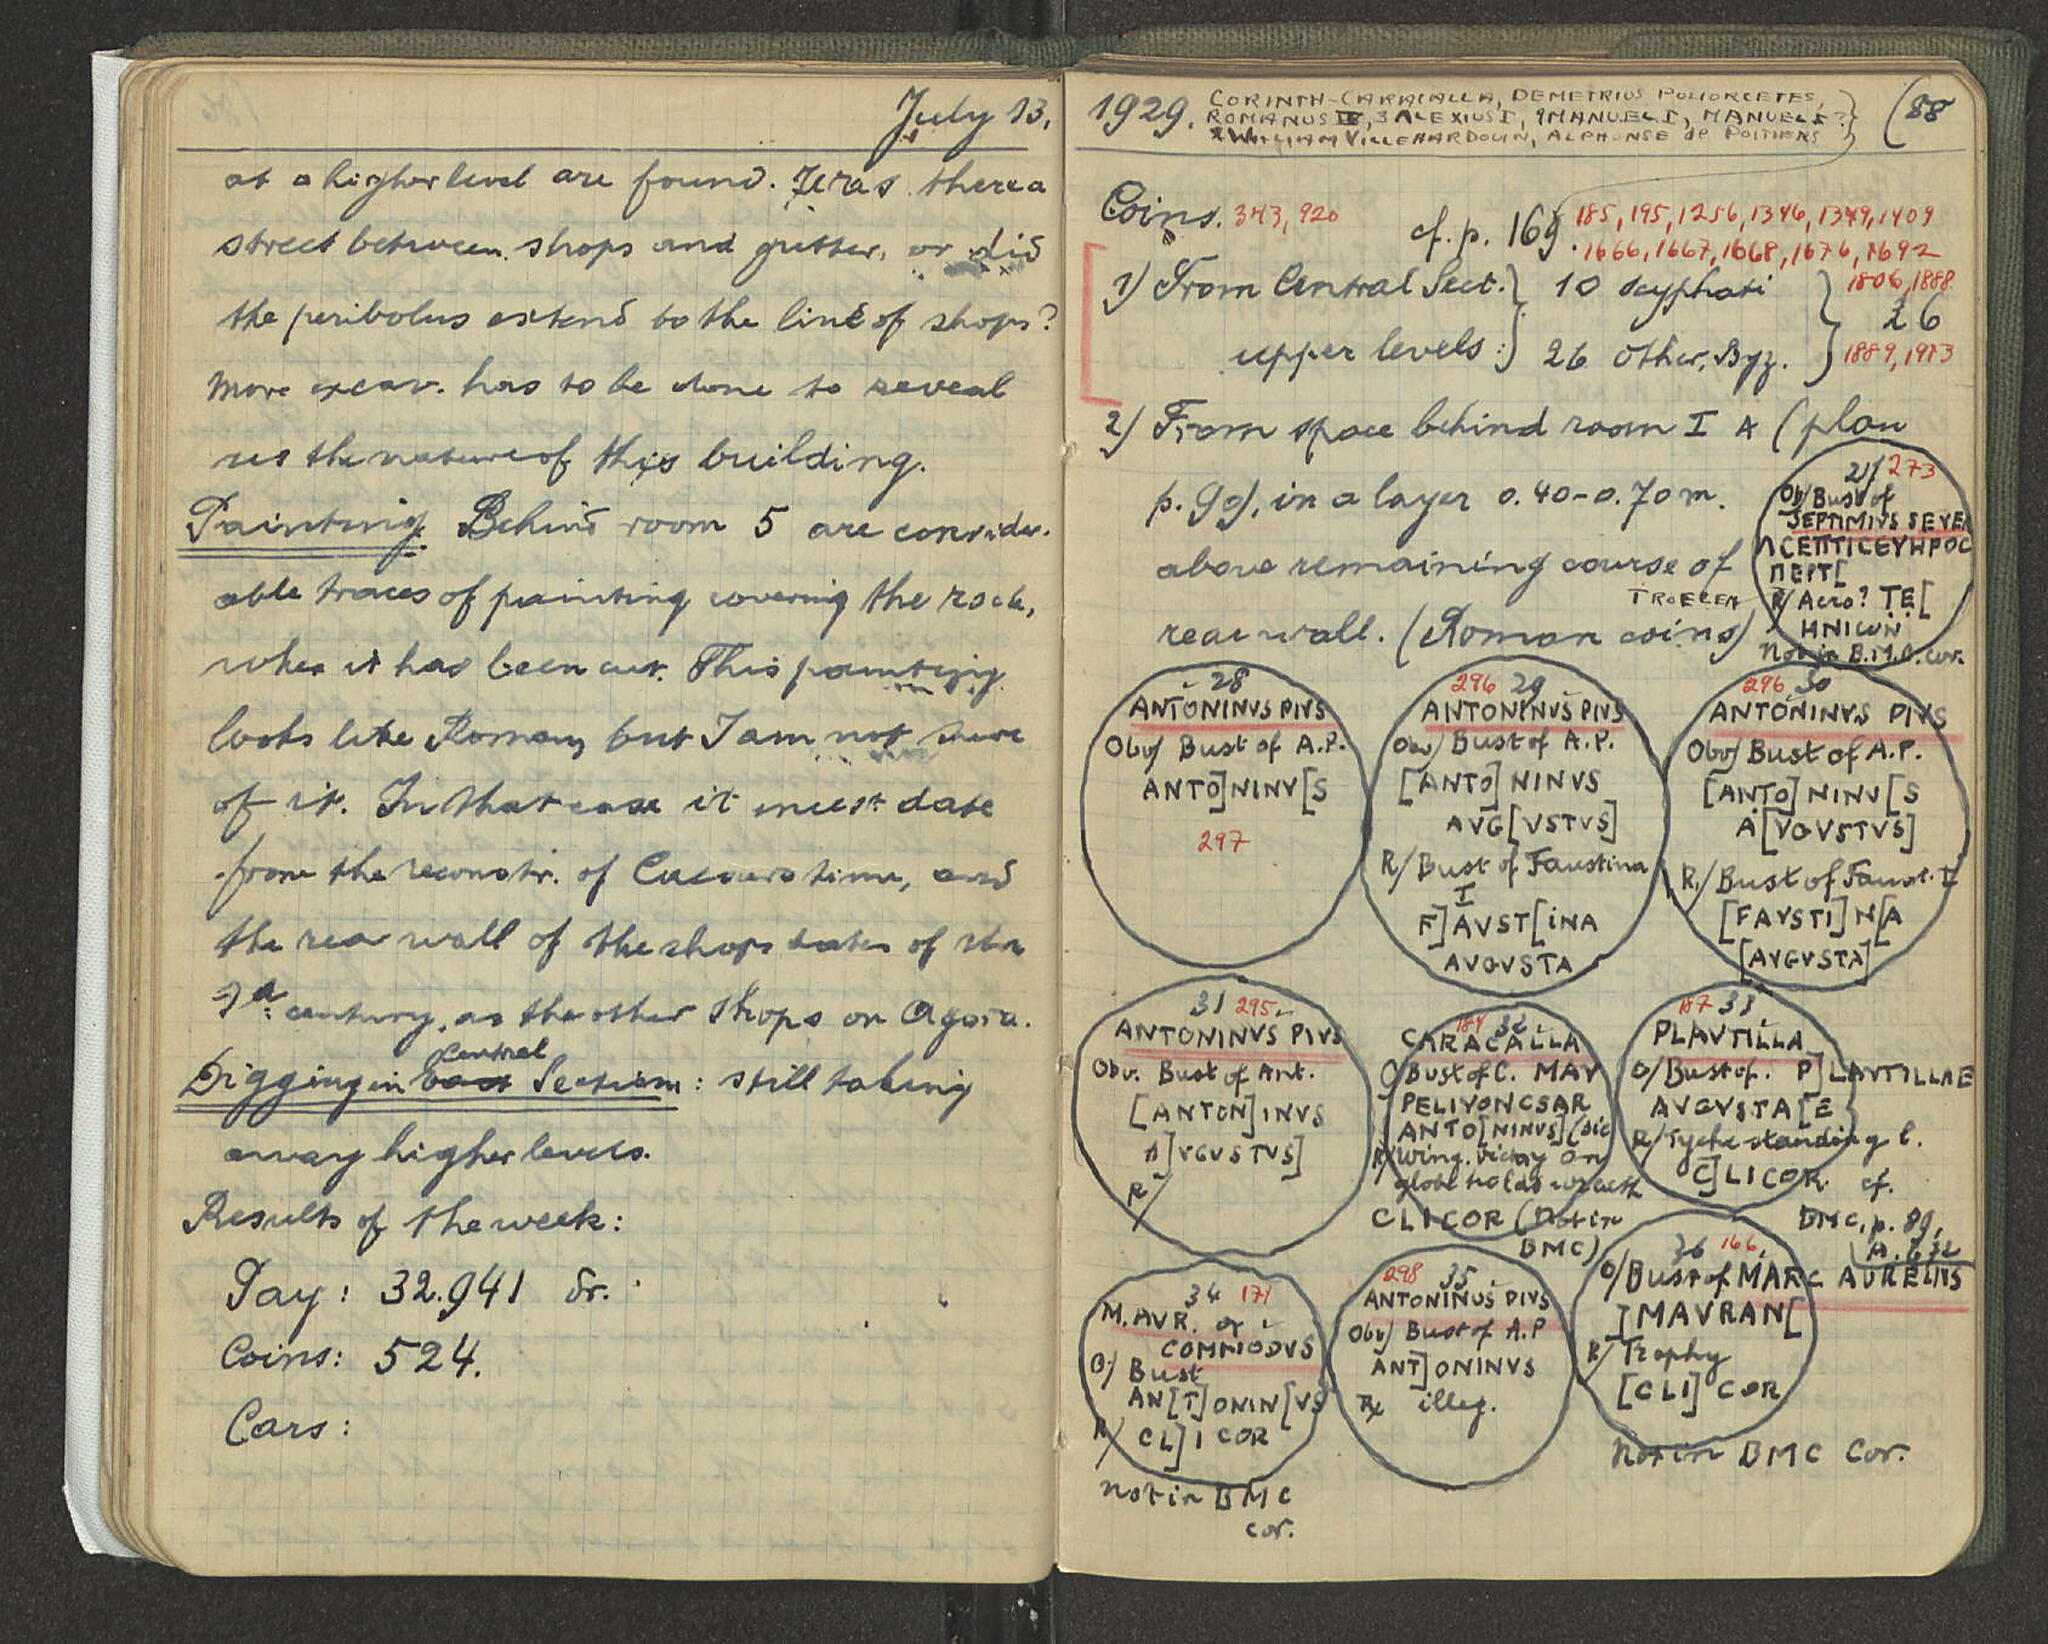 July 13,
at a higher level are found. Was there a
street between shops and gutter, or did
the peribolus extend to the line of shops?
More excav. has to be done to reveal
us the nature of this building.
Painting Behind room 5 are consider-
able traces of painting covering the rock,
when it has been cut. This painting
looks like Roman, but I am not sure
of it. In that case it must date
from the reconstr. of time, and
the rear wall of the shops dates of the
century, as the other shops on Agora.
Central
Digging in Section: still taking
away higher levels.
Results of the week:
Pay: 32.941 dr.
Coins: 524.
Cars:
1929.
CORINTH-CARACALLA, DEMETRIUS POLIORCETES,
ROMANUS IV, 3 ALEXIUS I, 9 MANUEL I, MANUEL I?
2 WILLIAM VILLEHARDOUIN, ALPHONSE de POITIERS
(88
Coins. 343, 920 cf. p. 169. 185, 195, 1256, 1346, 1349, 1409
1666, 1667, 1668, 1676, 1692
1) From Central Sect. } 10 scyphati } 1806, 1888
26
upper levels: } 26 other, Byz. } 1889, 1913
2) From space behind room I A (plan
p. 90), in a layer 0.40-0.70 m.
above remaining course of
TROEZEN
rear wall. (Roman coins)
27 273
Ob/ Bust of
SEPTIMIVS SEVER
ΛCEΠTICEYHPOC
ΠEPT[
R/ Acro? TE[
HNIωN
Not in B.M.C. cor.
28
ANTONINVS PIVS
Obv/ Bust of A.P.
ANTO]NINV[S
297
296 29
ANTONINVS PIVS
Obv/ Bust of A.P.
[ANTO]NINVS
AVG[VSTVS]
R/ Bust of Faustina
I
F]AVST[INA
AVGVSTA
296 30
ANTONINVS PIVS
Obv/ Bust of A.P.
[ANTO]NINV[S
A[VGVSTVS]
R/ Bust of Faust. I
[FAVSTI]N[A
[AVGVSTA]
31 295
ANTONINVS PIVS
Obv. Bust of Ant.
[ANTON]INVS
A]VGVSTVS]
R/
184 32
CARACALLA
O/ Bust of C. MAV
PELIVONCSAR
ANTO[NINVS] (sic
R/ Wing. Victory on
globe holds wreath
CLICOR (Not in
BMC)
187 33
PLAVTILLA
O/ Bust of. P]LAVTILLAE
AVGVSTA[E
R/ Tyche standing l.
C]LICOR cf.
BMC, p. 89,
34 171
M. AVR. or
COMMODVS
O/ Bust
AN[T]ONIN[VS
R/ CL]I COR
Not in BMC
cor.
298 35
ANTONINUS PIVS
Obv/ Bust of A.P
ANT]ONINVS
R illeg.
36 166
O/ Bust of MARC AURELIUS
]MAVRAN[
R/ Trophy
[CLI]COR
Not in BMC Cor.